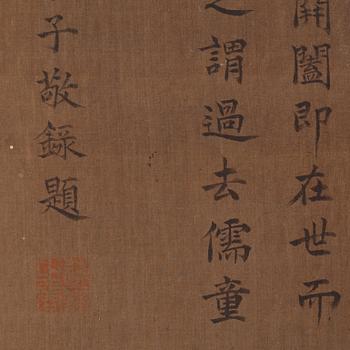 開闔即在世而
之謂過去儒童
子敬錄題